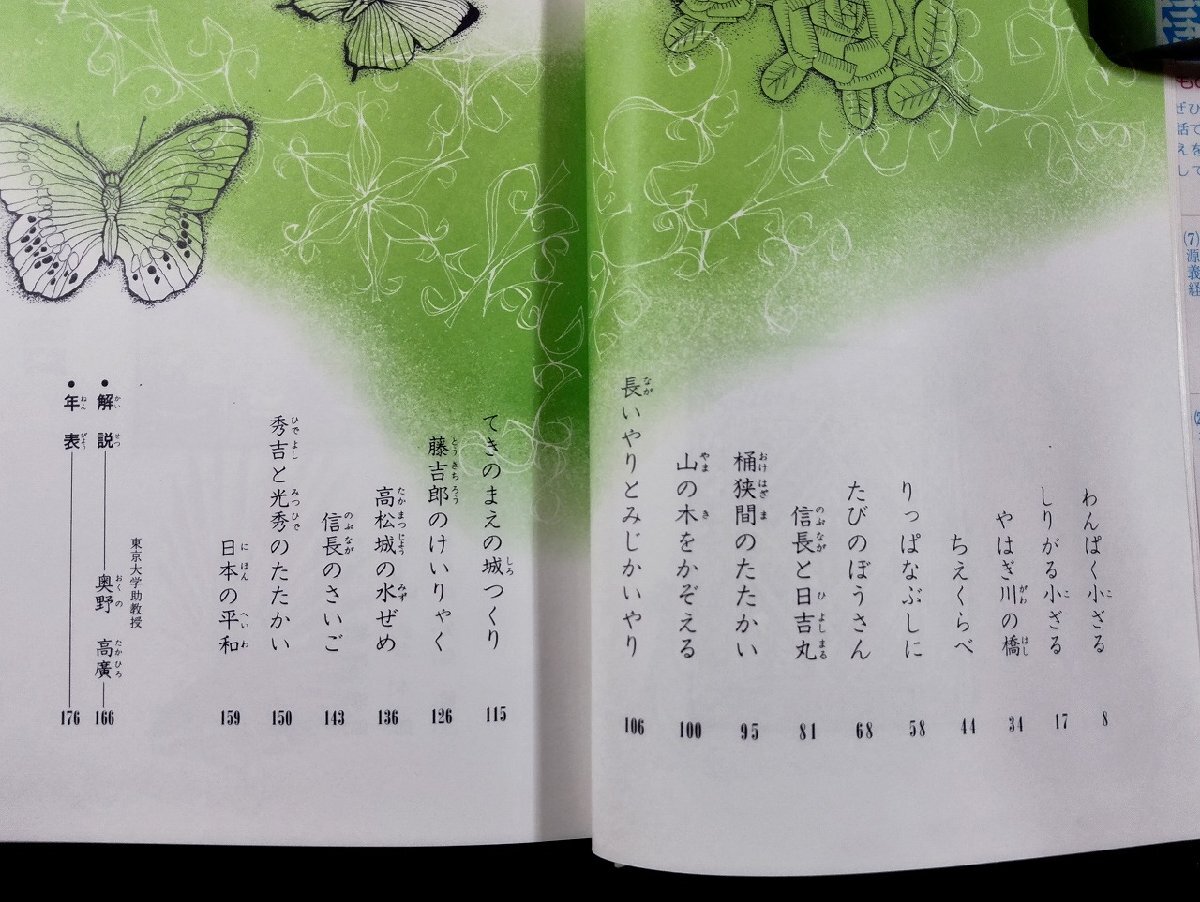 わんぱく小ざる 8
しりがる小ざる 17
やはぎ川の橋 34
ちえくらべ 44
りっぱなぶしに 58
たびのぼうさん 68
信長と日吉丸 81
桶狭間のたたかい 95
山の木をかぞえる 100
長いやりとみじかいやり 106
てきのまえの城つくり 115
藤吉郎のけいりゃく 126
高松城の水ぜめ 136
信長のさいご 143
秀吉と光秀のたたかい 150
日本の平和 159
東京大学助教授
●解説 奥野高廣 166
●年表 176
(7)源義経